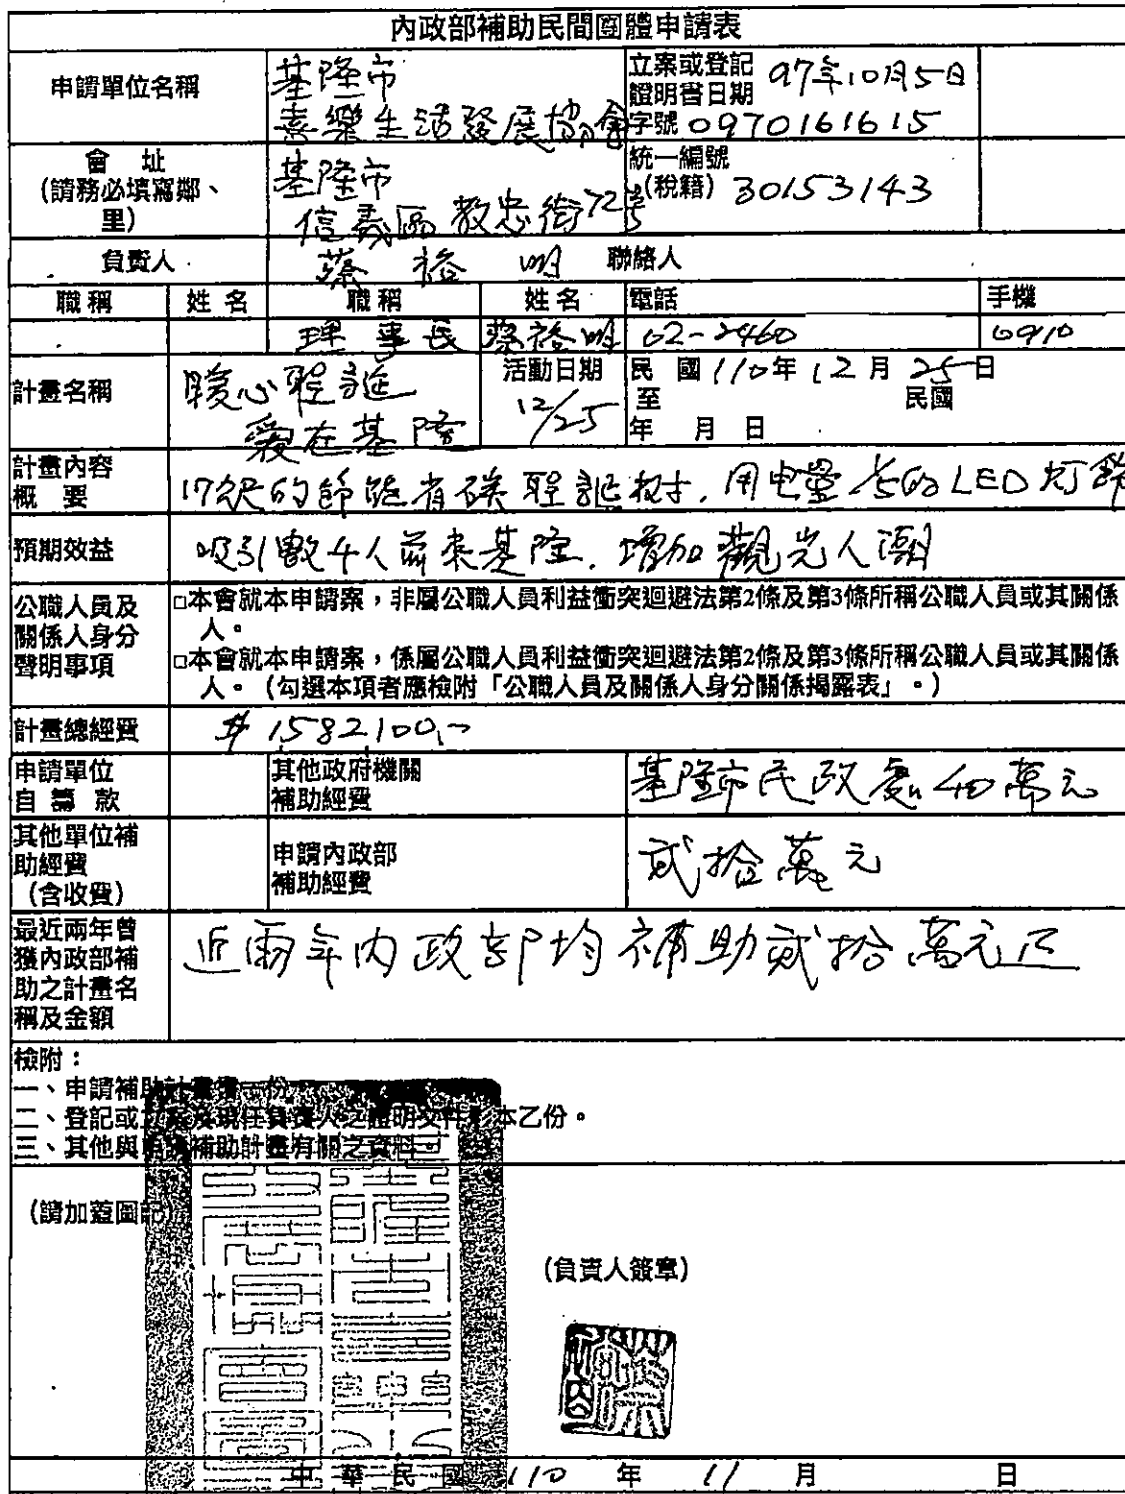 內政部補助民間團體申請表
申請單位名稱
基隆市
喜樂生活發展協會
立案或登記
證明書日期
97年10月5日
字號 0970161615
會 址
(請務必填寫鄰、
里)
基隆市
信義區教忠街72號
統一編號
(稅籍) 30153143
負責人
蔡裕明
聯絡人
職稱 姓名 職稱 姓名 電話 手機
理事長 蔡裕明 02-2460 0910
計畫名稱
暖心聖誕
愛在基隆
活動日期
12/25
民國110年12月25日
至 民國
年 月 日
計畫內容
概 要
17呎的節能省碳聖誕樹,用电量 的LED灯飾
預期效益
吸引數千人前來基隆,增加觀光人潮
公職人員及
關係人身分
聲明事項
□本會就本申請案，非屬公職人員利益衝突迴避法第2條及第3條所稱公職人員或其關係
人。
□本會就本申請案，係屬公職人員利益衝突迴避法第2條及第3條所稱公職人員或其關係
人。(勾選本項者應檢附「公職人員及關係人身分關係揭露表」。)
計畫總經費
$1,582,100.-
申請單位
自籌款
其他政府機關
補助經費
基隆市民政處40萬元
其他單位補
助經費
(含收費)
申請內政部
補助經費
貳拾萬元
最近兩年曾
獲內政部補
助之計畫名
稱及金額
近兩年內政部均補助貳拾萬元正
檢附：
一、申請補助計畫書一份
二、登記或立案及現任負責人之證明文件影本乙份。
三、其他與申請補助計畫有關之資料。
(請加蓋圖記)
(負責人簽章)
中華民國110年11月 日